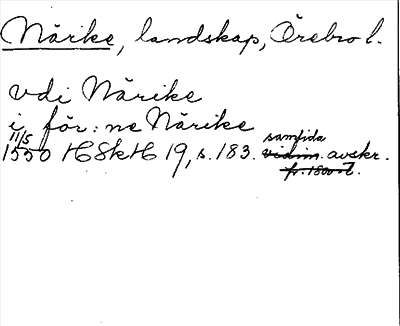 Närike, landskap, Örebro l.
vdi Närike
i för: ne Närike
11/5 1550 HSkH 19, s. 183. samtida avskr.